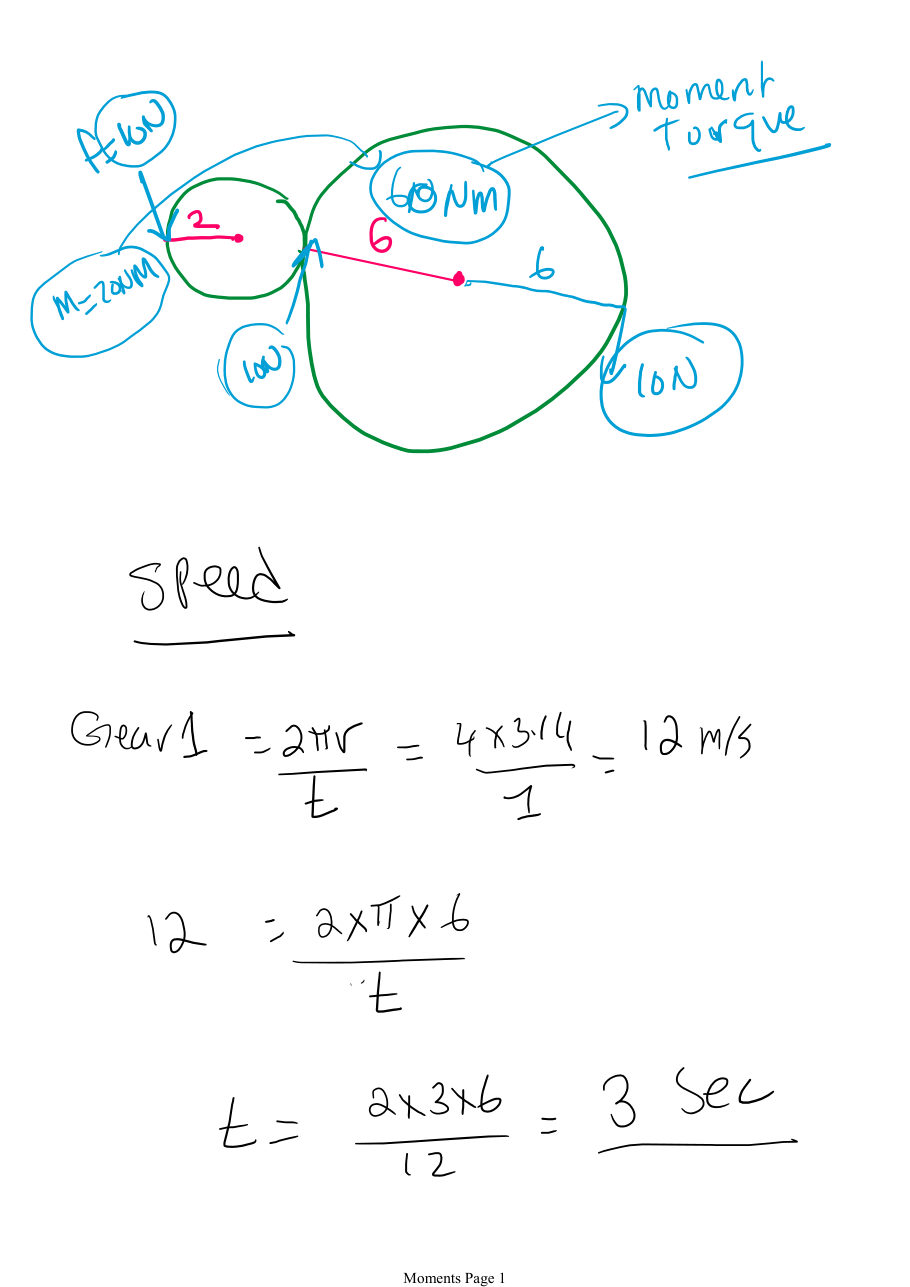 moment
torque
10N
60 Nm
2
6
6
M=20NM
10N
10N
Speed
Gear 1 = 2πr / t = 4×3.14 / 1 = 12 m/s
12 = 2×π×6 / t
t = 2×3×6 / 12 = 3 Sec
Moments Page 1